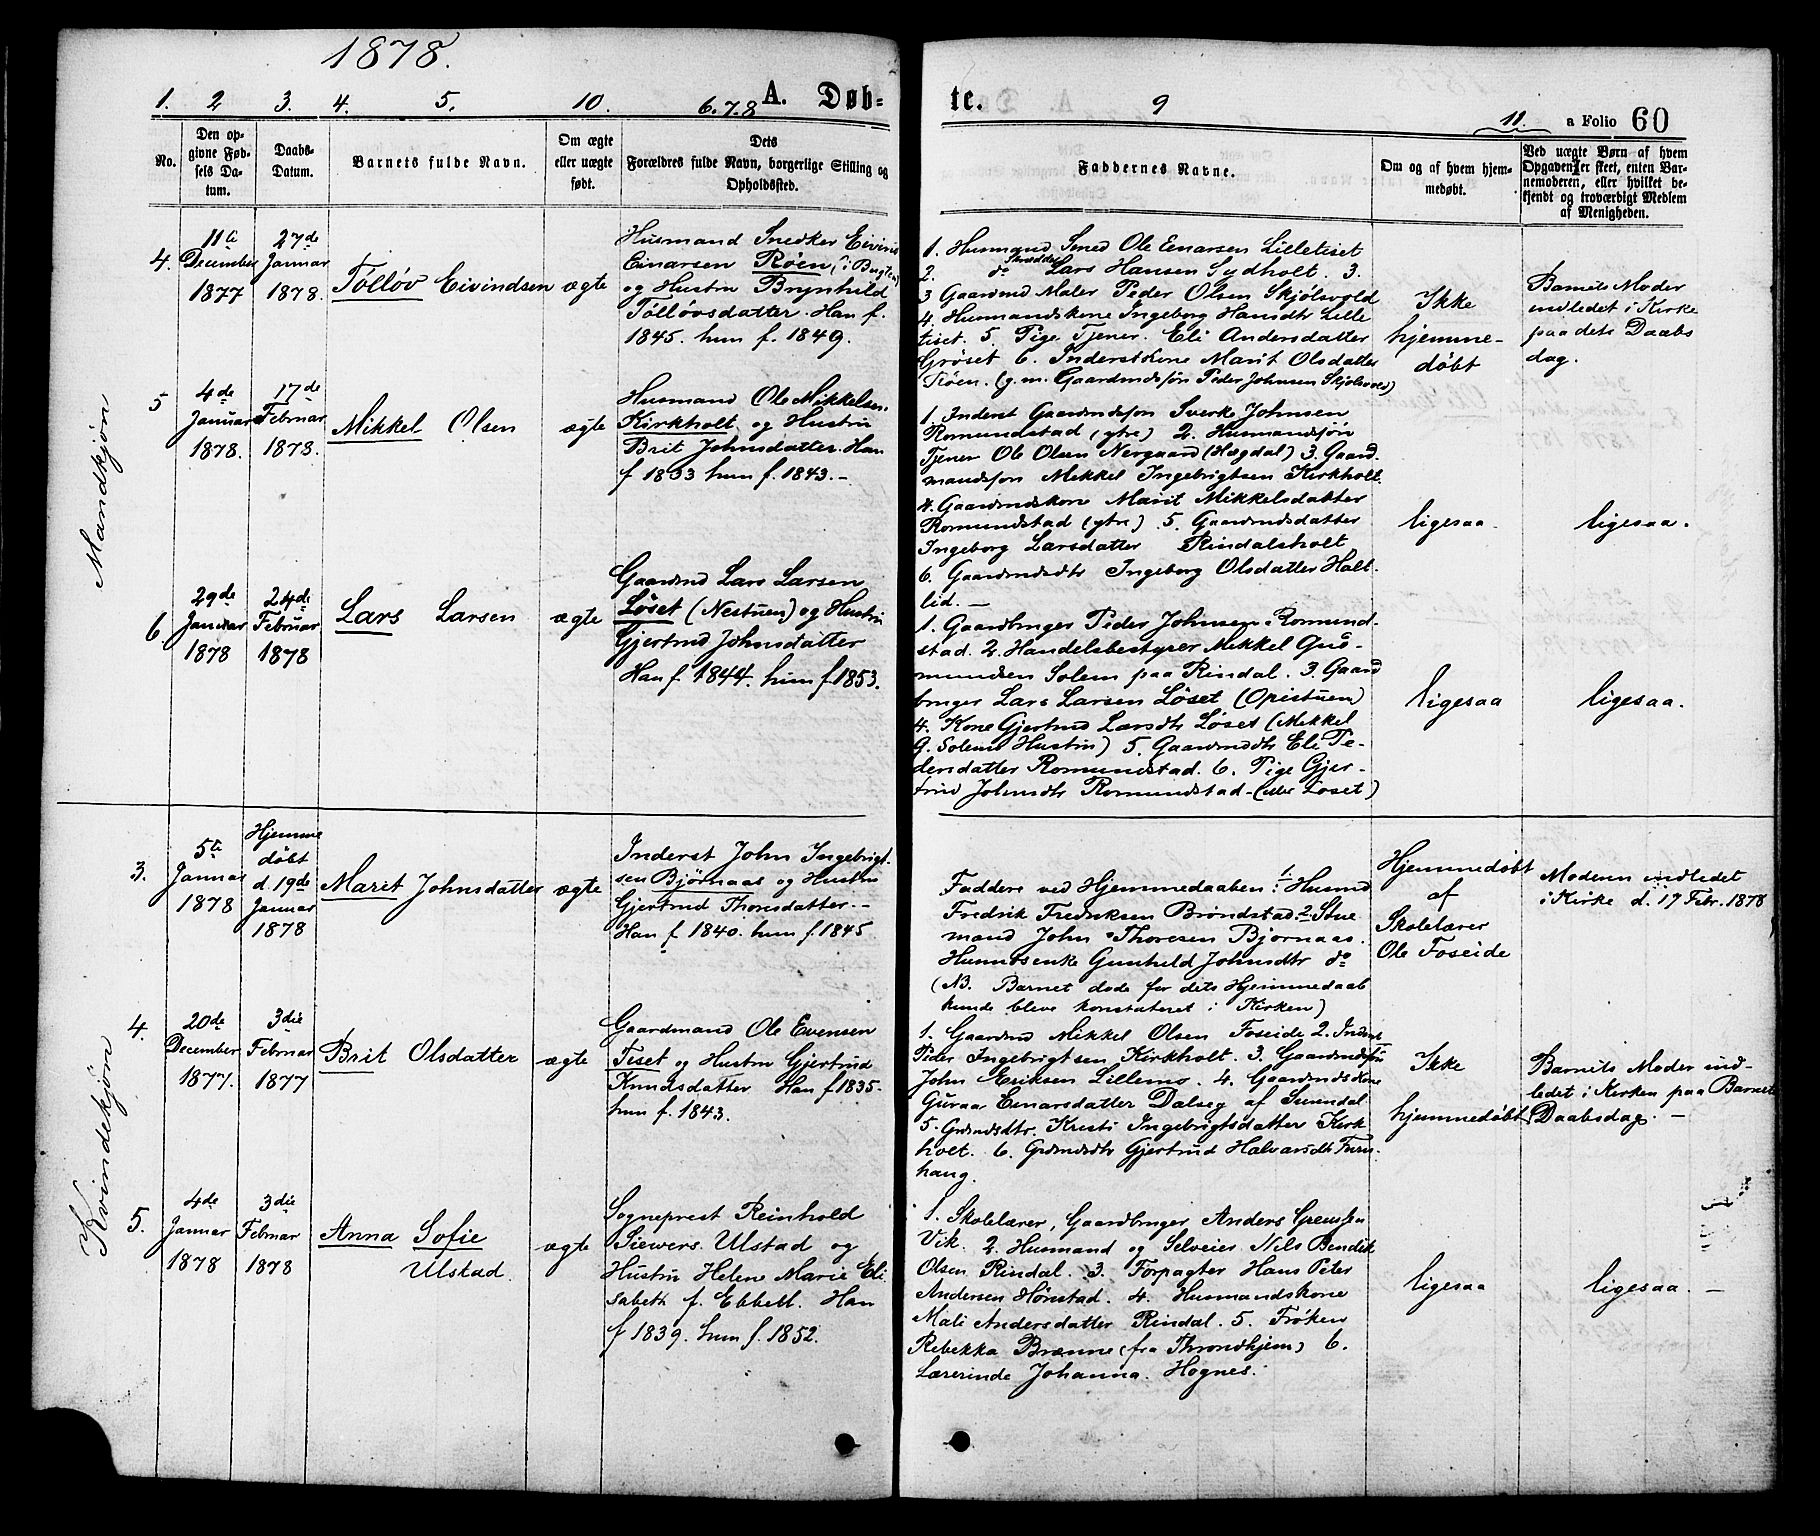 1878.
1. 2 3. 4. 5. 10. 6.7.8 A. Døb-
No.
Den op-
givne Fød-
sels Da-
tum.
Daabs-
Datum.
Barnets fulde Navn.
Om ægte
eller uægte
født.
Dets
Forældres fulde Navn, borgerlige Stilling og
Opholdssted.
te. 9 11. a Folio 60
Faddernes Navne.
Om og af hvem hjem-
medøbt.
Ved uægte Børn af hvem
Opgaven er skeet, enten Bar-
nemoderen, eller hvilket be-
kjendt og troværdigt Medlem
af Menigheden.
Mandkjøn
4.
11te
December
1877
27de
Januar
1878.
Tølløv Eivindsen
ægte
Husmand Snedker Eivind
Einarsen Røen (i Bugten)
og Hustru Brynhild
Tølløvsdatter. Han f.
1845. hun f. 1849.
1. Husmand Sned Ole Einarsen Lilletiset
2. do Skrædder Lars Hansen Sydholt. 3.
3 Gaardmd Maler Peder Olsen Skjølsvold
4. Husmandskone Ingeborg Hansdtr Lille
tiset. 5. Pige Tjener. Eli Andersdatter
Grøset 6. Inderstkone Marit Olsdatter
Røen. (g.m. Gaardmdsøn Peder Johnsen Skjølsvold)
Ikke
hjemme-
døbt
Barnets Moder
indledet i Kirke
paa dets Daabs
dag.
5
4de
Januar
1878.
17de
Februar
1878.
Mikkel Olsen
ægte
Husmand Ole Mikkelsen
Kirkholt og Hustru
Brit Johnsdatter. Han
f 1833 hun f. 1843.-
1. Inderst Gaardmdsøn Sverke Johnsen
Romundstad (ytre) 2. Husmandsøn
Tjener Ole Olsen Nergaard (Hægdal) 3. Gaard
mandsøn Mikkel Ingebrigtsen Kirkholt.
4. Gaardmdskone Marit Mikkelsdatter
Romundstad (ytre). 5. Gaardmdsdatter
Ingeborg Larsdatter Rindalsholt
6. Gaardmdsdtr Ingeborg Olsdatter Halt-
lid. —
ligesaa.
ligesaa.
6.
29de
Januar
1878
24de
Februar
1878
Lars Larsen
ægte
Gaardmd Lars Larsen
Løset (Nestuen) og Hustru
Gjertrud Johnsdatter
Han f. 1844. hun f. 1853.
1. Gaardbruger Peder Johnsen Romund-
stad. 2. Handelsbestyrer Mikkel Gud-
mundsen Solem paa Rindal. 3. Gaard
bruger Lars Larsen Løset (Opistuen)
4. Kone Gjertrud Larsdtr Løset (Mikkel
G. Solems Hustru) 5. Gaardmdtr Eli Pe-
dersdatter Romundstad. 6. Pige Gjer-
trud Johnsdtr Romundstad - (eller Løset)
ligesaa
ligesaa.
Kvindekjøn
3.
5te
Januar
1878
Hjemme
døbt
d. 19de
Januar
1878
Marit Johnsdatter
ægte
Inderst John Ingebrigt-
sen Bjørnaas og Hustru
Gjertrud Thoresdatter.-
Han f. 1840. hun f. 1845
Faddere ved Hjemmedaaben: 1. Husmd
Fredrik Fredriksen Brøndstad 2. Stue
mand John Thoresen Bjørnaas.
Husmdsenke Gunhild Johnsdtr do
(NB. Barnet døde før dets Hjemmedaab
kunde bleve konstateret i Kirken)
Hjemmedøbt
af
Skolelærer
Ole Foseide
Moderen indledet
i Kirke d. 17 Febr. 1878
4.
20de
December
1877.
3die
Februar
1877
Brit Olsdatter
ægte
Gaardmand Ole Evensen
Tiset og Hustru Gjertrud
Knudsdatter Han f 1835.
hun f. 1843.
1. Gaardmd Mikkel Olsen Foseide 2. Inderst
Peder Ingebrigtsen Kirkholt. 3. Gaardmdsøn
John Eriksen Lillemo. 4. Gaardmdskone
Guraa Einarsdatter Dalseg af Sundal
5. Grdmdsdtr. Kristi Ingebrigtsdatter Kirk
holt. 6. Grdmdsdtr Gjertrud Halvarsdtr Furu-
haug.
Ikke
hjemmedøbt
Barnets Moder ind-
ledet i Kirken paa Barnets
Daabsdag. —
5.
4de
Januar
1878
3die
Februar
1878
Anna Sofie
Ulstad.
ægte
Sogneprest Reinhold
Siewers Ulstad og
Hustru Helene Marie Eli
sabeth f. Ebbell. Han
f 1839. hun f. 1852.
1. Skolelærer, Gaardbruger Anders Grensen
Vik. 2. Husmand og Selveier Nils Bendik
Olsen Rindal. 3. Forpagter Hans Peter
Andersen Hønstad. 4. Husmandskone
Mali Andersdatter Rindal. 5. Frøken
Rebekka Brænne (fra Throndhjem) 6.
Lærerinde Johanna Hognes.
ligesaa
ligesaa. —